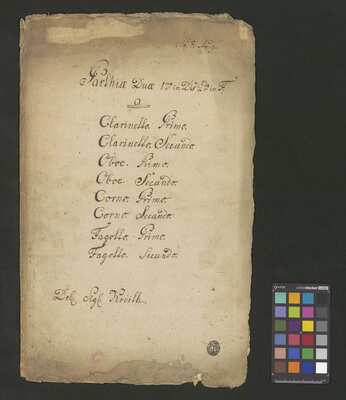 Parthiæ Duæ 1ma in Dis 2da in F
Clarinetto Primo.
Clarinetto Secundo.
Oboe. Primo.
Oboe Secundo.
Corno. Primo.
Corno. Secundo.
Fagotto. Primo.
Fagotto. Secundo.
Del Sigl